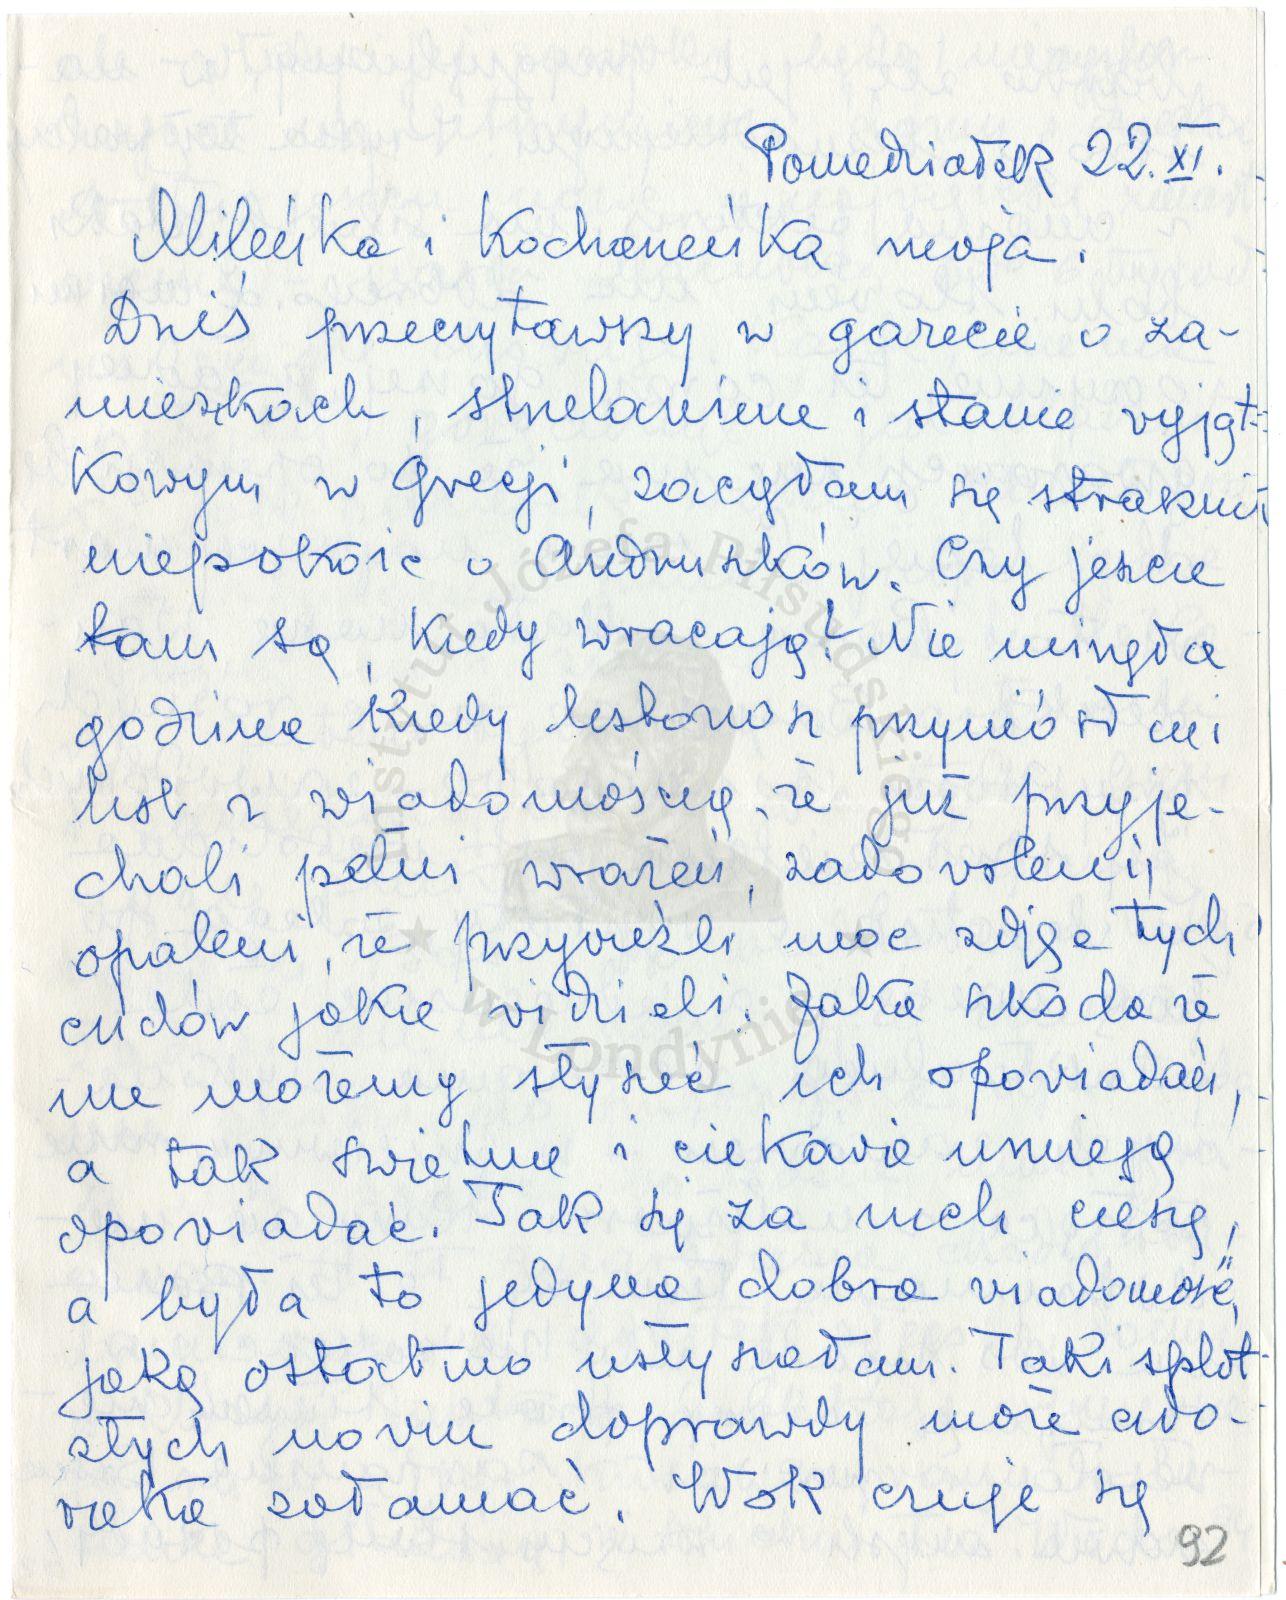 Poniedziałek 22.XI.
Mileńka i Kochaneńka moja.
Dziś przeczytawszy w gazecie o za-
mieszkach, strzelaninie i stanie wyjąt-
kowym w Grecji, zaczęłam się strasznie
niepokoić o Andruszków. Czy jeszcze
tam są, kiedy wracają? Nie minęła
godzina kiedy listonosz przyniósł mi
list z wiadomością, że już przyje-
chali pełni wrażeń, zadowoleni i
opaleni, że przywieźli moc zdjęć tych
cudów jakie widzieli. Jaka szkoda że
nie możemy słyszeć ich opowiadań,
a tak świetnie i ciekawie umieją
opowiadać. Tak się za nich cieszę,
a była to jedyna dobra wiadomość,
jaką ostatnio usłyszałam. Taki splot
złych nowin doprawdy może czło-
wieka załamać. Wok czuje się
92
Instytut Józefa Piłsudskiego
w Londynie